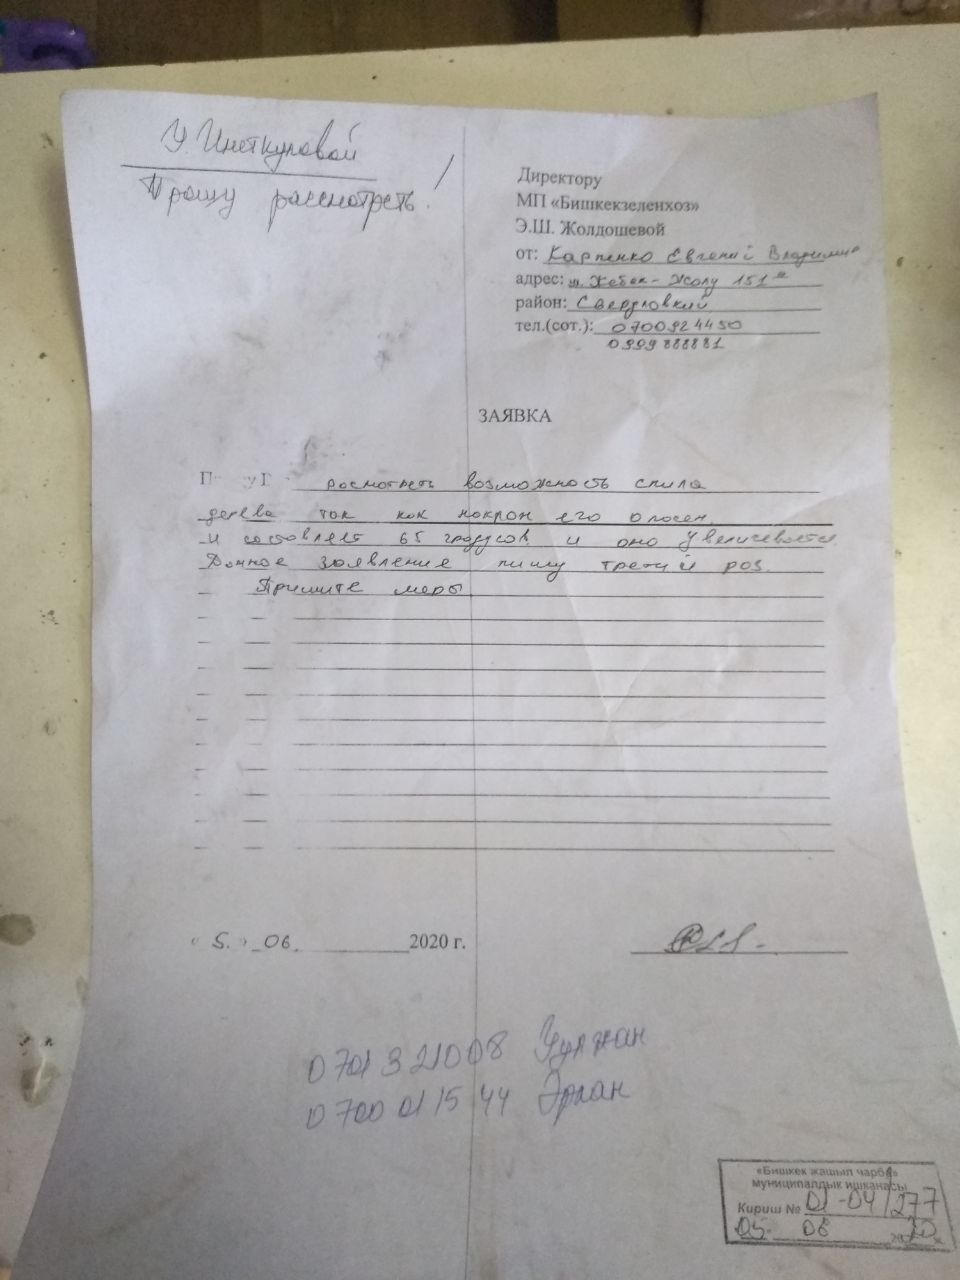 У. Инеткуловой
Прошу рассмотреть!
Директору
МП «Бишкекзеленхоз»
Э.Ш. Жолдошевой
от: Карпенко Евгений Владимир
адрес: ул. Жебек-Жолу 151
район: Свердловкий
тел.(сот.): 0700924450
0999888881
ЗАЯВКА
росмотреть возможность спила
дерева ток как нокрон его опосен
и состовляет 65 градусов и оно увеличевается.
Донное зоявление пишу третий роз.
Примите меры
« 5. » 06. 2020 г.
0701321008 Нулжан
0700 01 15 44 Эрлан
«Бишкек жашыл чарба»
муниципалдык ишканасы
Кириш № 01-04/277
05. 06 20